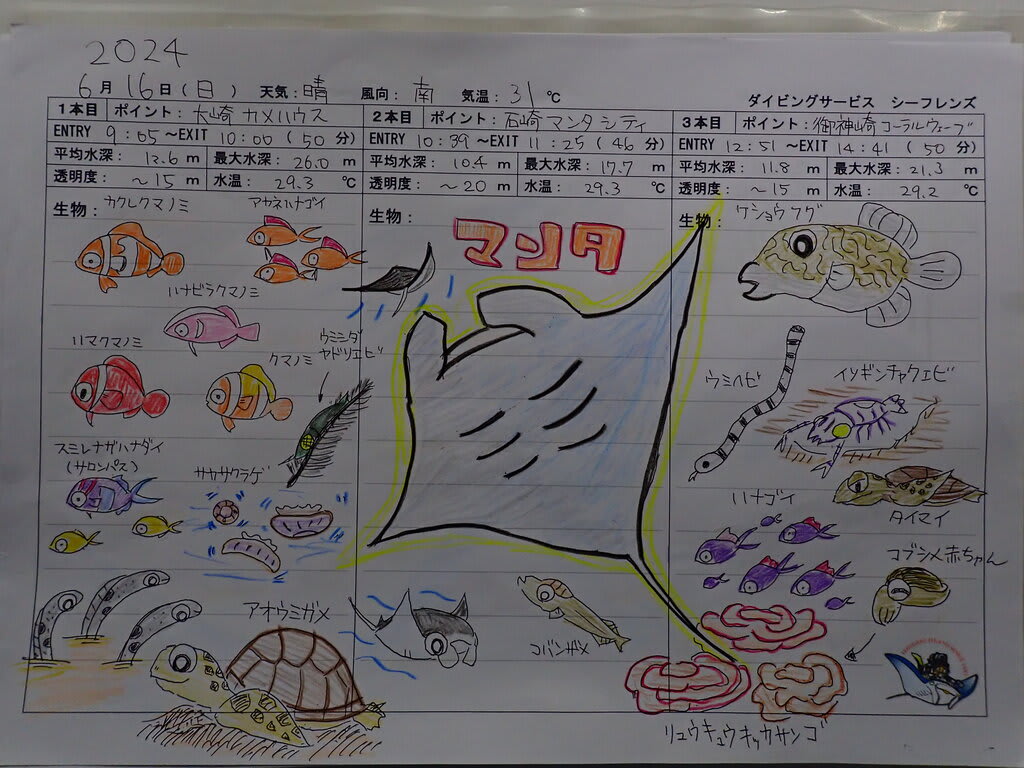 2024
6月16日(日) 天気:晴 風向:南 気温:31℃
ダイビングサービス シーフレンズ
1本目 ポイント:大崎 カメハウス
ENTRY 9:05~EXIT 10:00(50分)
平均水深:12.6m 最大水深:26.0m
透明度:~15m 水温:29.3℃
生物:
カクレクマノミ
アカネハナゴイ
ハナビラクマノミ
ハマクマノミ
クマノミ
ウミシダ
ヤドリエビ
スミレナガハナダイ
(サロンパス)
サカサクラゲ
アオウミガメ
2本目 ポイント:石崎 マンタ シティ
ENTRY 10:39~EXIT 11:25(46分)
平均水深:10.4m 最大水深:17.7m
透明度:~20m 水温:29.3℃
生物:
マンタ
コバンザメ
3本目 ポイント:御神崎 コーラルウェーブ
ENTRY 12:51~EXIT 14:41(50分)
平均水深:11.8m 最大水深:21.3m
透明度:~15m 水温:29.2℃
生物:
ケショウフグ
ウミヘビ
イソギンチャクエビ
タイマイ
ハナゴイ
コブシメ赤ちゃん
リュウキュウキッカサンゴ